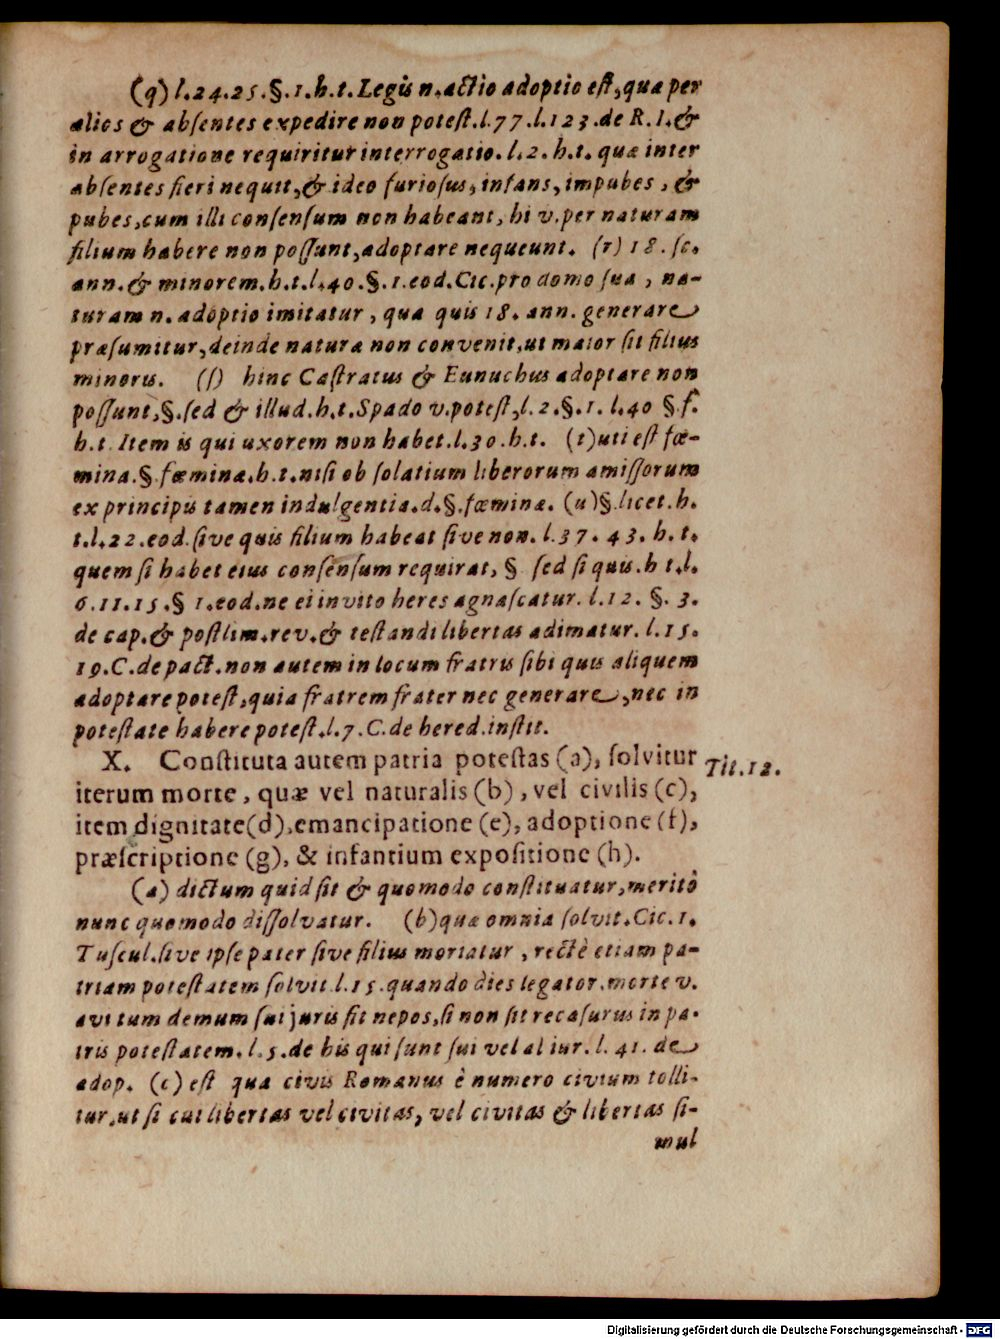 (q) l.24.25.§.1.h.t. Legis n. actio adoptio est, qua per
alios & absentes expedire non potest. l.77.l.123.de R.I. &
in arrogatione requiritur interrogatio. l.2. h.t. quæ inter
absentes fieri nequit, & ideo furiosus, infans, impubes, &
pubes, cum illi consensum non habeant, hi v. per naturam
filium habere non possunt, adoptare nequeunt. (r) 18. sc.
ann. & minorem. h.t.l.40.§.1.eod. Cic. pro domo sua, na-
turam n. adoptio imitatur, qua quis 18. ann. generare
præsumitur, deinde natura non convenit, ut maior sit filius
minoris. (ſ) hinc Castratus & Eunuchus adoptare non
possunt, §. sed & illud. h.t. Spado v. potest, l.2.§.1. l.40 §.f.
h.t. Item is qui uxorem non habet. l.30.h.t. (t) uti est fœ-
mina. §. fœmina. h.t. nisi ob solatium liberorum amissorum
ex principis tamen indulgentia. d.§. fœmina. (u) §. licet. h.
t.l.22.eod. sive quis filium habeat sive non. l.37. 43. h.t.
quem si habet eius consensum requirat, § sed si quis. h t.l.
6.11.15.§ 1.eod. ne ei invito heres agnascatur. l.12. §. 3.
de cap. & postlim. rev. & testandi libertas adimatur. l.15.
19.C. de pact. non autem in locum fratris sibi quis aliquem
adoptare potest, quia fratrem frater nec generare, nec in
potestate habere potest. l.7.C. de hered. instit.
X. Constituta autem patria potestas (a), solvitur Tit.12.
iterum morte, quæ vel naturalis (b), vel civilis (c),
item dignitate (d), emancipatione (e), adoptione (f),
præscriptione (g), & infantium expositione (h).
(a) dictum quid sit & quomodo constituatur, meritò
nunc quomodo dissolvatur. (b) quæ omnia solvit. Cic. 1.
Tuscul. sive ipse pater sive filius moriatur, rectè etiam pa-
triam potestatem solvit l.15. quando dies legator. morte v.
avi tum demum sui juris fit nepos, si non sit recasurus in pa-
tris potestatem. l.5. de his qui sunt sui vel al iur. l. 41. de
adop. (c) est qua civis Romanus è numero civium tolli-
tur, ut si cui libertas vel civitas, vel civitas & libertas si-
mul
Digitalisierung gefördert durch die Deutsche Forschungsgemeinschaft - DFG